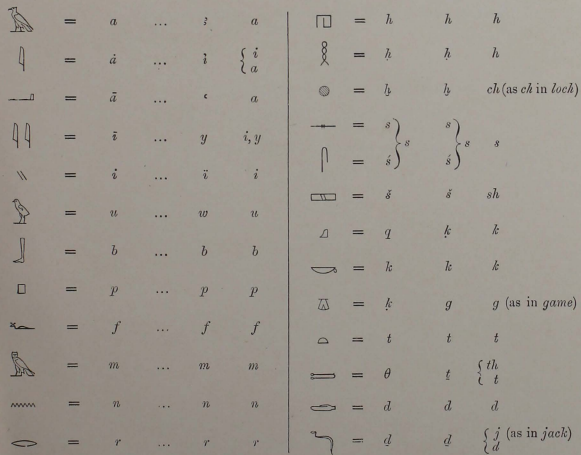 𓄿 = a ... ꜣ a
𓇋 = ȧ ... i̓ { i a
𓂝 = ā ... ꜥ a
𓇌 = ī ... y i, y
𓏭 = i̓ ... ï i
𓅱 = u ... w u
𓃀 = b ... b b
𓊪 = p ... p p
𓆑 = f ... f f
𓅓 = m ... m m
𓈖 = n ... n n
𓂋 = r ... r r
𓉔 = h h h
𓎛 = ḥ ḥ h
𓐍 = ḫ ḫ ch (as ch in loch)
𓊃 = s } s s } s s
𓋴 = ś ś
𓈙 = š š sh
𓈎 = q ḳ k
𓎡 = k k k
𓎼 = ḳ g g (as in game)
𓏏 = t t t
𓍿 = θ ṯ { th t
𓂧 = d d d
𓆓 = ḏ ḏ { j (as in jack) d